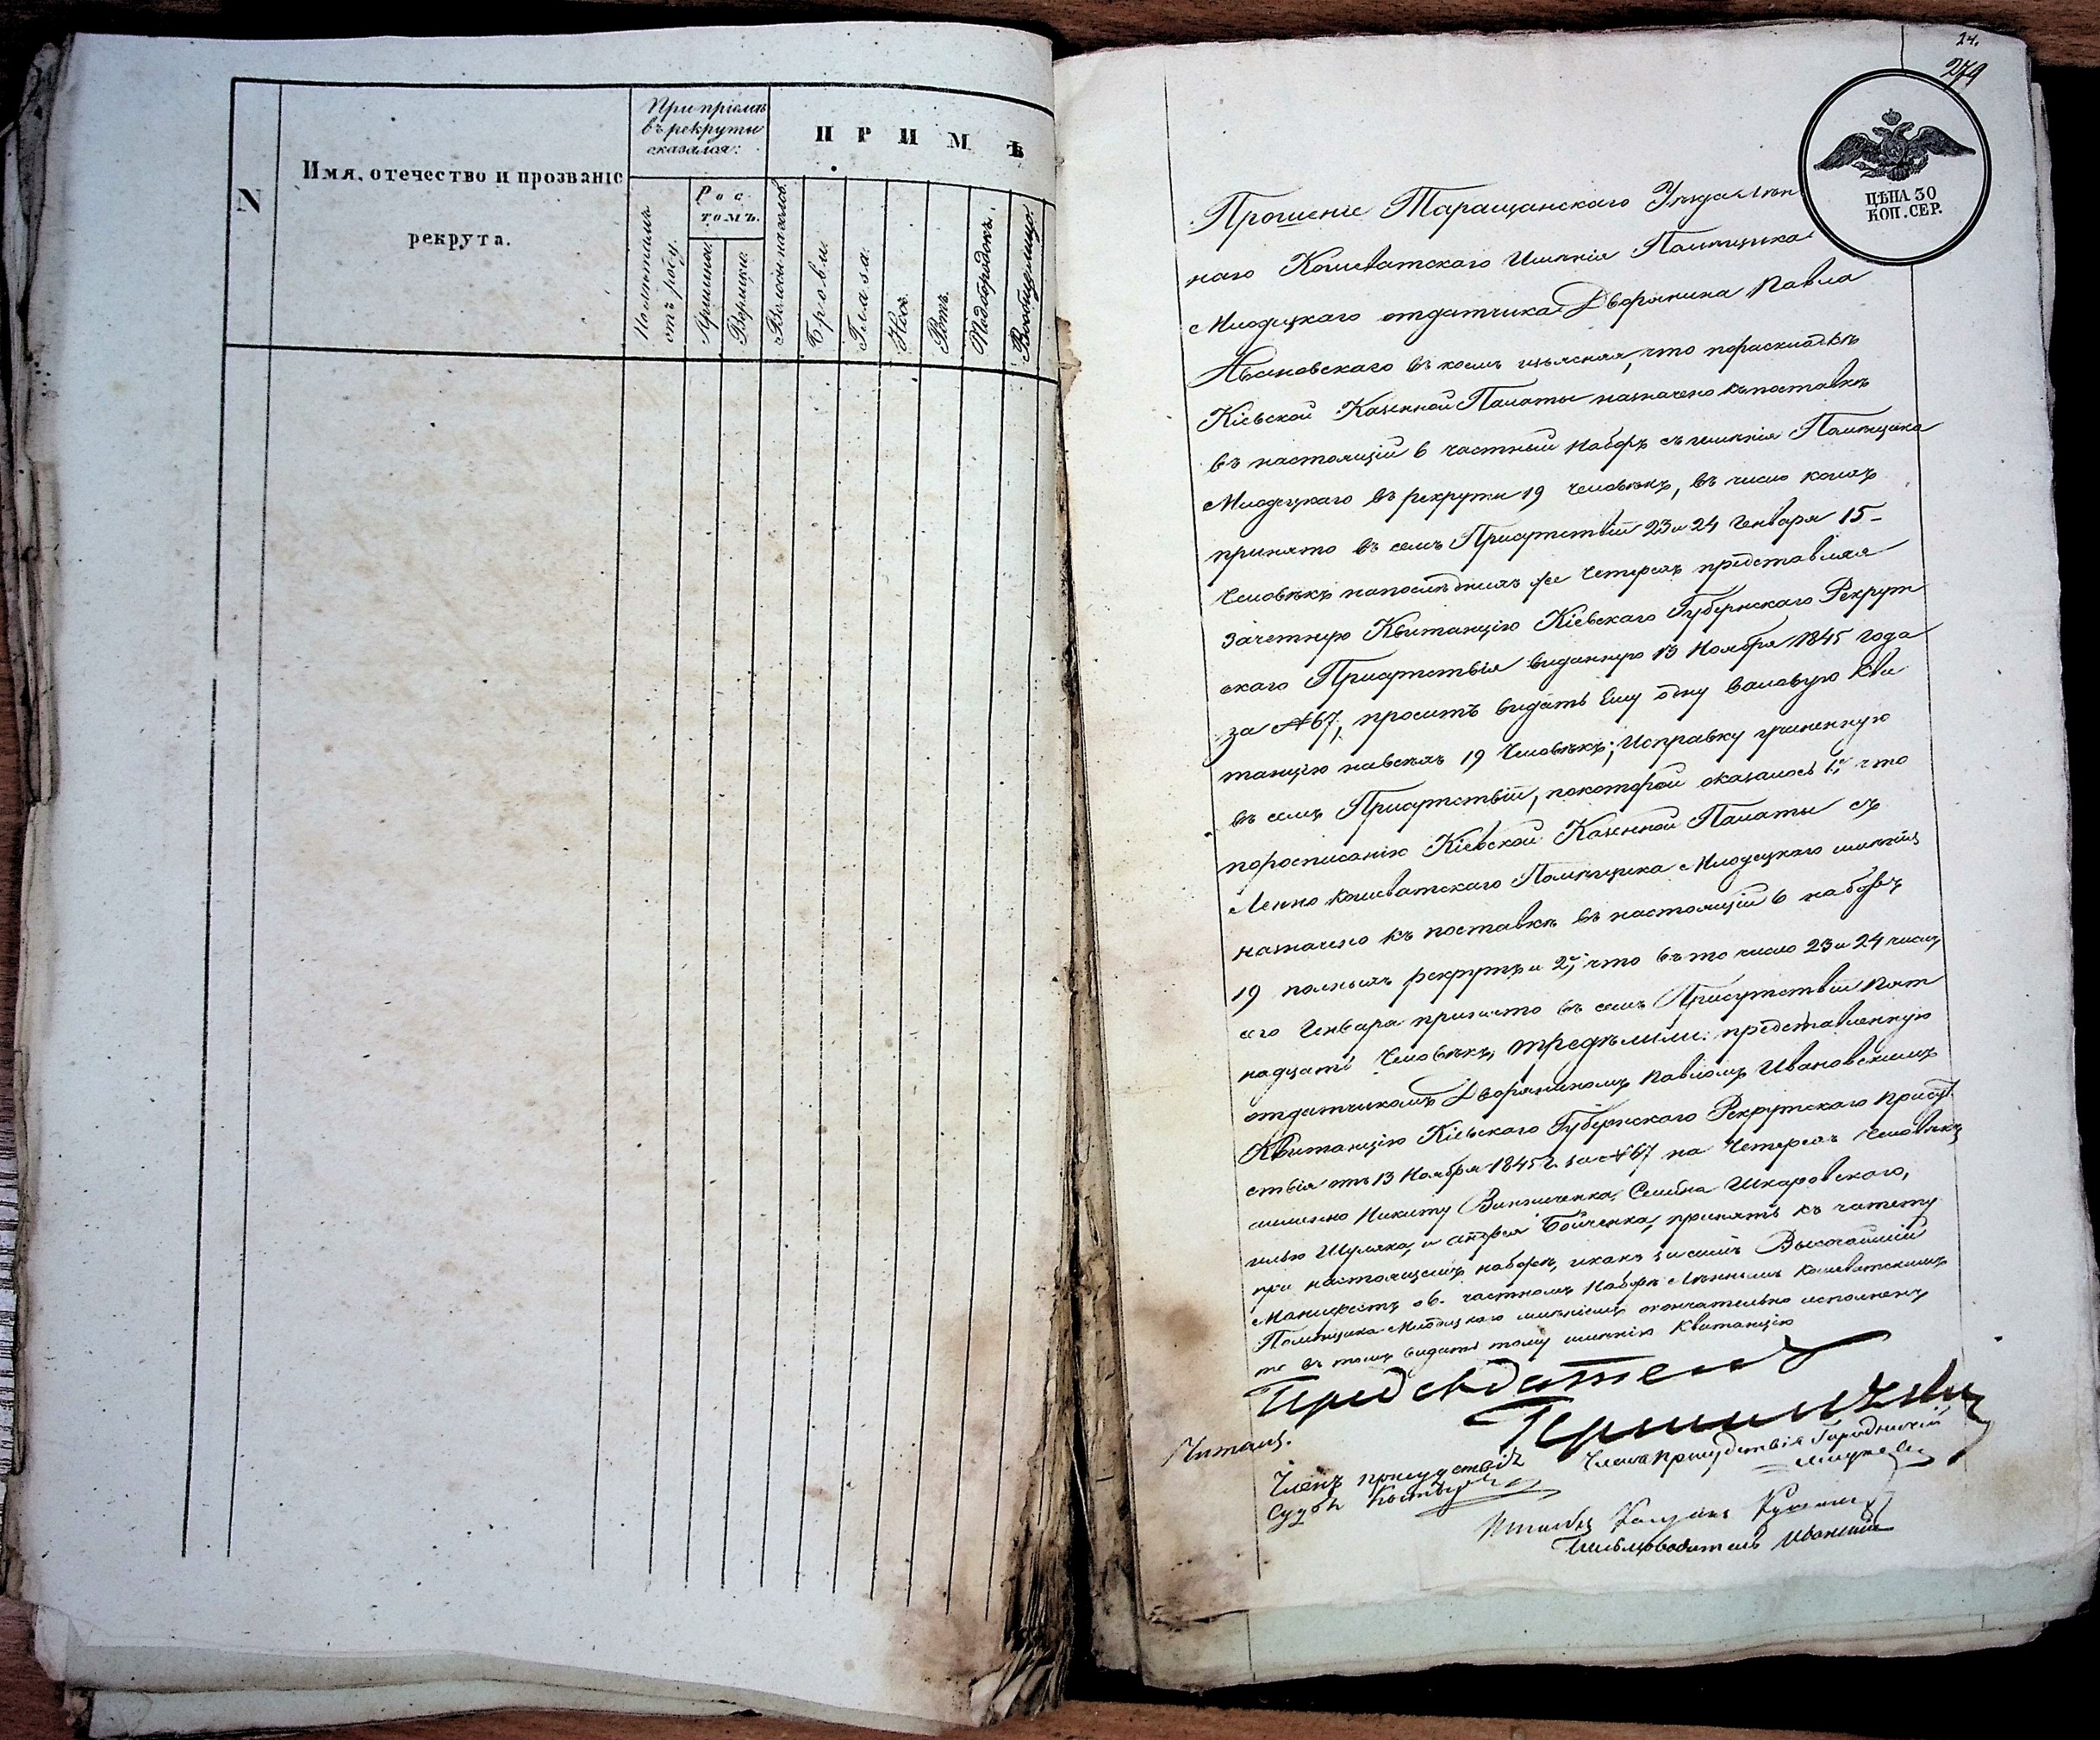 N
Имя, отечество и прозваніе
рекрута.
При пріемѣ
въ рекруты
оказался:
П Р И М Ѣ
Рос
томъ.
Аршины.
Вершки.
Брови.
Глаза.
Носъ.
Ротъ.
Подбородокъ.
Вообще лицо.
24.
279
ЦѢНА 30
КОП. СЕР.
Прошеніе Таращанскаго Уѣзда Лѣн
наго Кошеватскаго Имѣнія Помѣщика
Млодецкаго отдатчика Дворянина Павла
Ивановскаго въ коемъ изъясняя, что пораскладкѣ
Кіевской Казенной Палаты назначено къ поставкѣ
въ настоящій 6 частный Наборъ съ имѣнія Помѣщика
Млодецкаго въ рекруты 19 человѣкъ, въ число коихъ
принято въ семъ Присутствіи 23 и 24 Генваря 15-
человѣкъ напослѣднихъ же четырехъ представляя
Зачетную Квитанцію Кіевскаго Губернскаго Рекрут
скаго Присутствія виданную 13 Ноября 1845 года
за №67, проситъ видать Ему одну валовую Кви
танцію навсехъ 19 Человѣкъ; Исправку учиненную
въ семъ Присутствіи, покоторой оказалось 1е, что
поросписанію Кіевской Казенной Палаты съ
Ленно Кошеватскаго Помѣщика Млодецкаго имѣнія
назначено къ поставкѣ въ настоящій 6 наборъ
19 полныхъ рекрутъ и 2е, что въ то число 23 и 24 числъ
сего Генваря принято въ семъ Присутствіи Пят
надцать Человѣкъ, предѣлили: представленную
отдатчикомъ Дворяниномъ Павломъ Ивановскимъ
Квитанцію Кіевскаго Губернскаго Рекрутскаго Присут
ствія отъ 13 Ноября 1845 г. за №67 на Четырехъ Человѣкъ
именно Никиту Винниченка, Семена Шкаровскаго,
Илью Шуляка, и Андрея Бойченка, принять къ зачету
при настоящемъ наборѣ, икакъ засимъ Высочайшій
Манифестъ о 6. частномъ Наборѣ Лѣннымъ Кошеватскимъ
Помѣщика Млодецкаго имѣніемъ окончательно исполненъ
то въ томъ видать тому имѣнію Квитанцію
Предсѣдатель
Читалъ.
Членъ присудствія
Судья
Членъ Присудствія Городничій
Письмоводитель Иваницкій